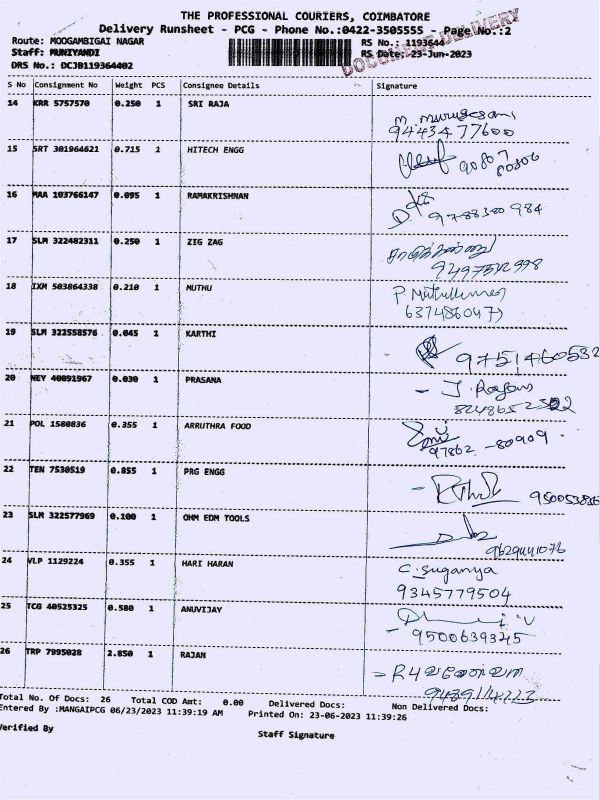 THE PROFESSIONAL COURIERS, COIMBATORE
Delivery Runsheet - PCG - Phone No.:0422-3505555 - Page No.:2
Route: MOOGAMBIGAI NAGAR
RS No.: 1193644
Staff: MUNIYANDI
RS Date: 23-Jun-2023
DRS No.: DCJB119364402
DELIVERY
S No Consignment No Weight PCS Consignee Details Signature
14 KRR 5757570 0.250 1 SRI RAJA
M. Murugesan
9443477600
15 SRT 301964621 0.715 1 HITECH ENGG
90807
16 MAA 103766147 0.095 1 RAMAKRISHNAN
9788380984
17 SLM 322482311 0.250 1 ZIG ZAG
18 IXM 503864338 0.210 1 MUTHU
P
19 SLM 322558576 0.045 1 KARTHI
9751460532
20 NEY 40091967 0.030 1 PRASANA
- J.
21 POL 1580836 0.355 1 ARRUTHRA FOOD
97862 - 80909
22 TEN 7530519 0.855 1 PRG ENGG
23 SLM 322577969 0.100 1 OHM EDM TOOLS
24 VLP 1129224 0.355 1 HARI HARAN
C. Suganya
9345779504
25 TCG 40525325 0.580 1 ANUVIJAY
- 9500639345
26 TRP 7995028 2.850 1 RAJAN
Total No. Of Docs: 26 Total COD Amt: 0.00 Delivered Docs: Non Delivered Docs:
Entered By :MANGAIPCG 06/23/2023 11:39:19 AM Printed On: 23-06-2023 11:39:26
Verified By
Staff Signature